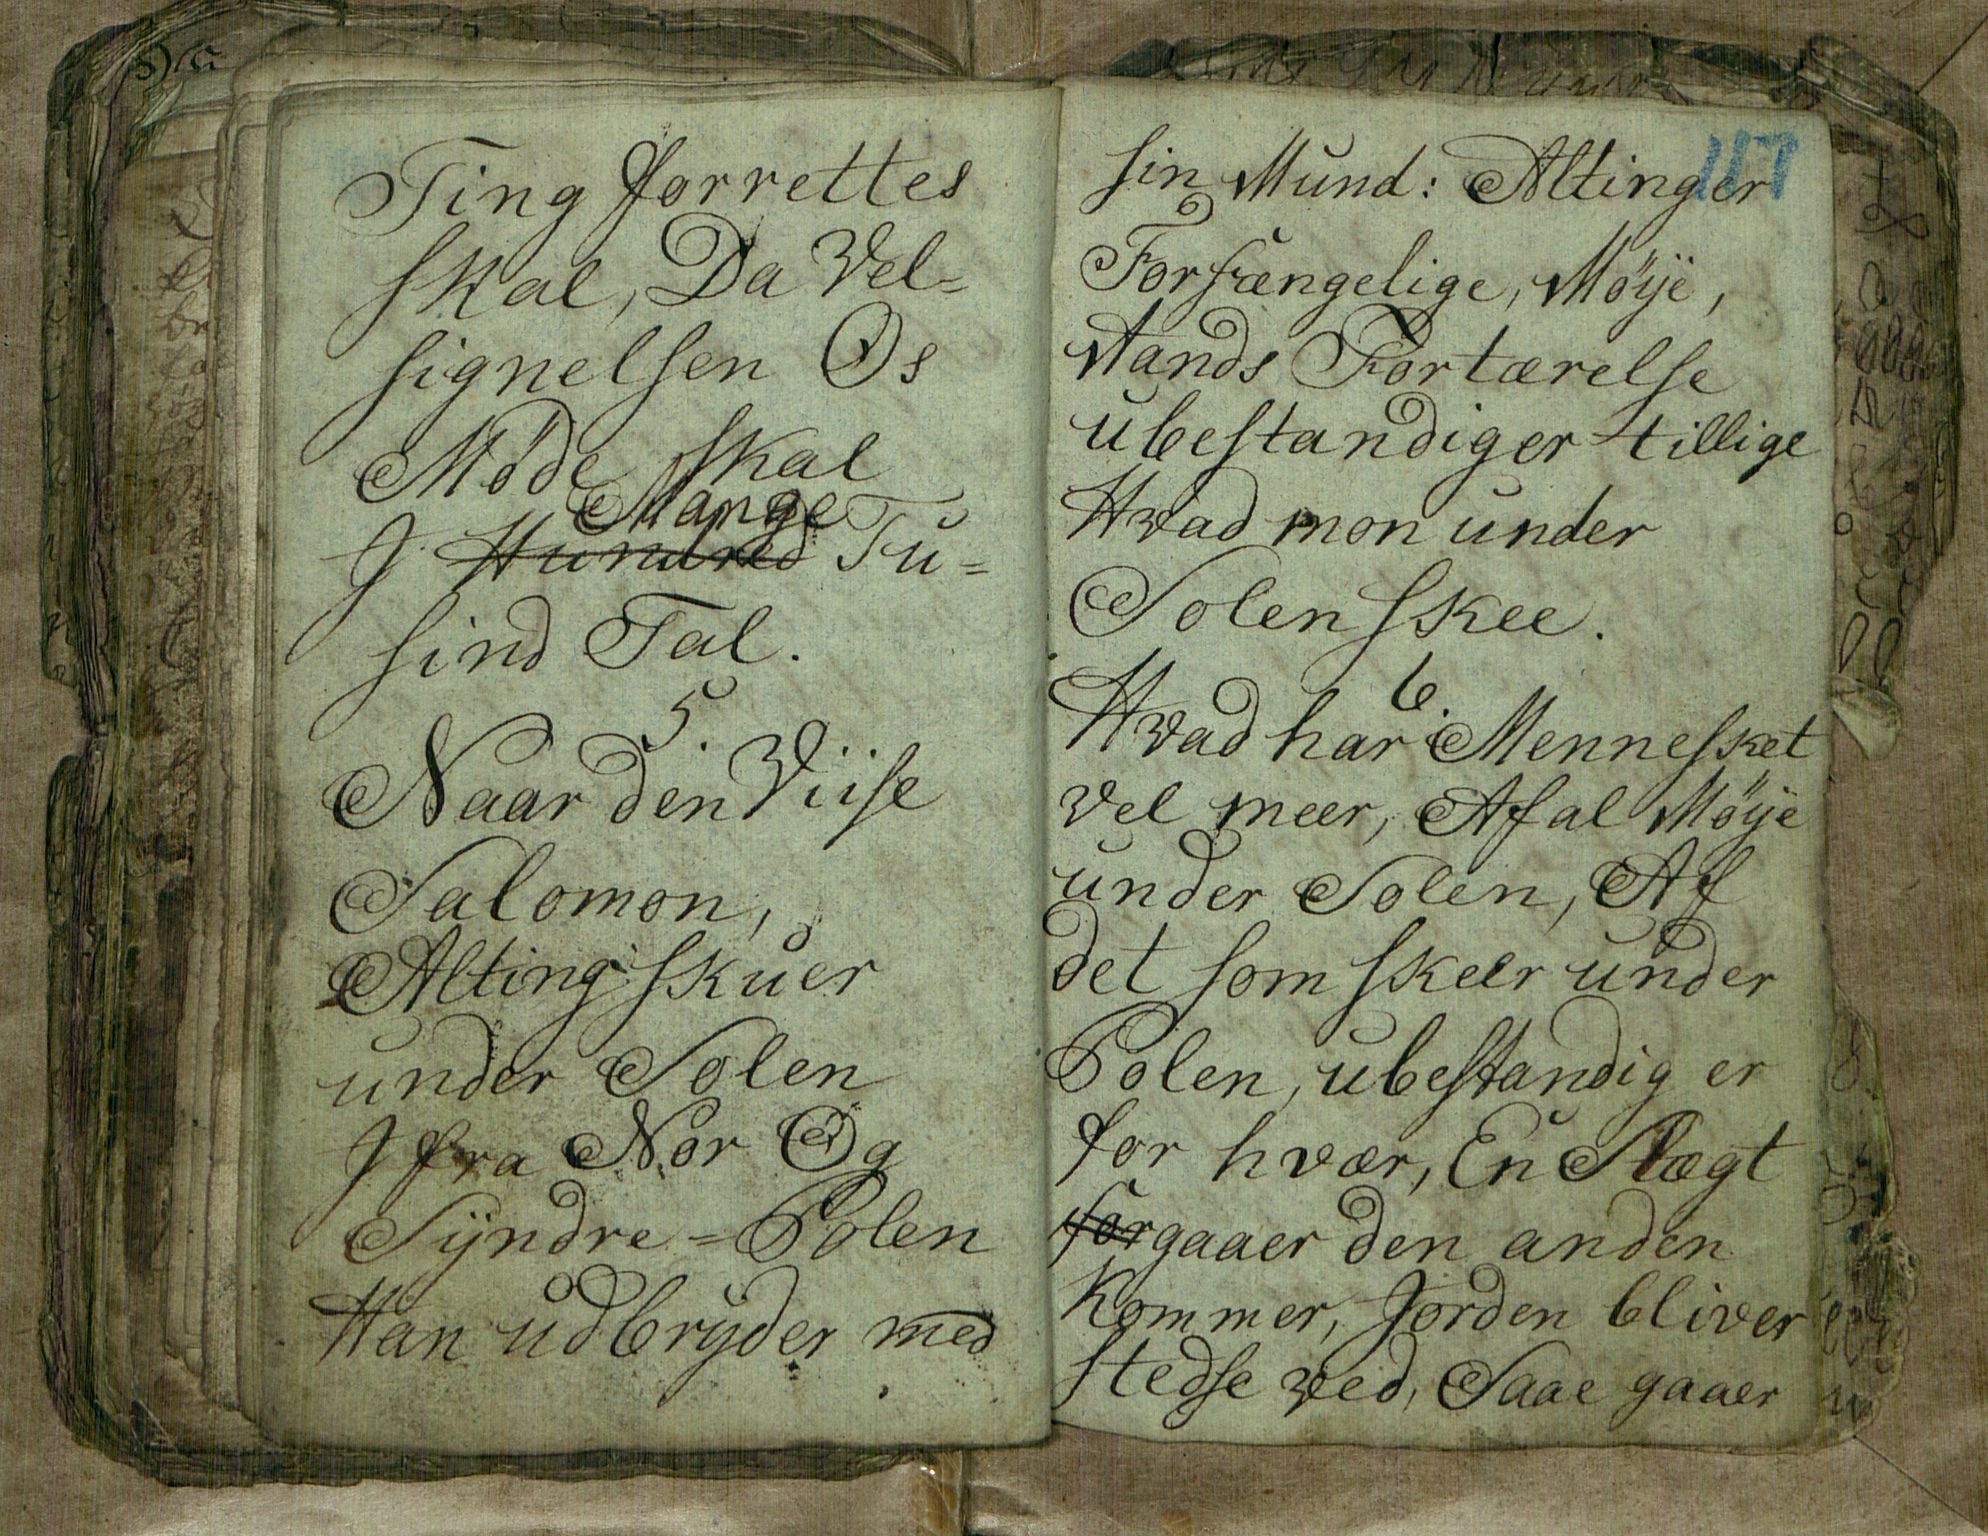 Ting forrettes
skal, Da Vel=
signelsen Os
Møde skal
Mange
J Hundred Tu=
sind Tal.
5.
Naar den Viise
Salomon,
Alting skuer
under Solen
J fra Nor Og
Syndre=Polen
Han udbryder med
117
sin Mund: Altinger
Forfængelige, Møÿe,
Aands Fortærelse
ubestandiger tillige
Hvad mon under
Solen skee.
6.
Hvad har Mennesket
vel meer, Af al Møÿe
under Solen, Af
det som skeer under
Polen, ubestandig er
for hvær, En Slægt
forgaaer den anden
kommer, Jorden bliver
stedse ved, Saae gaaer